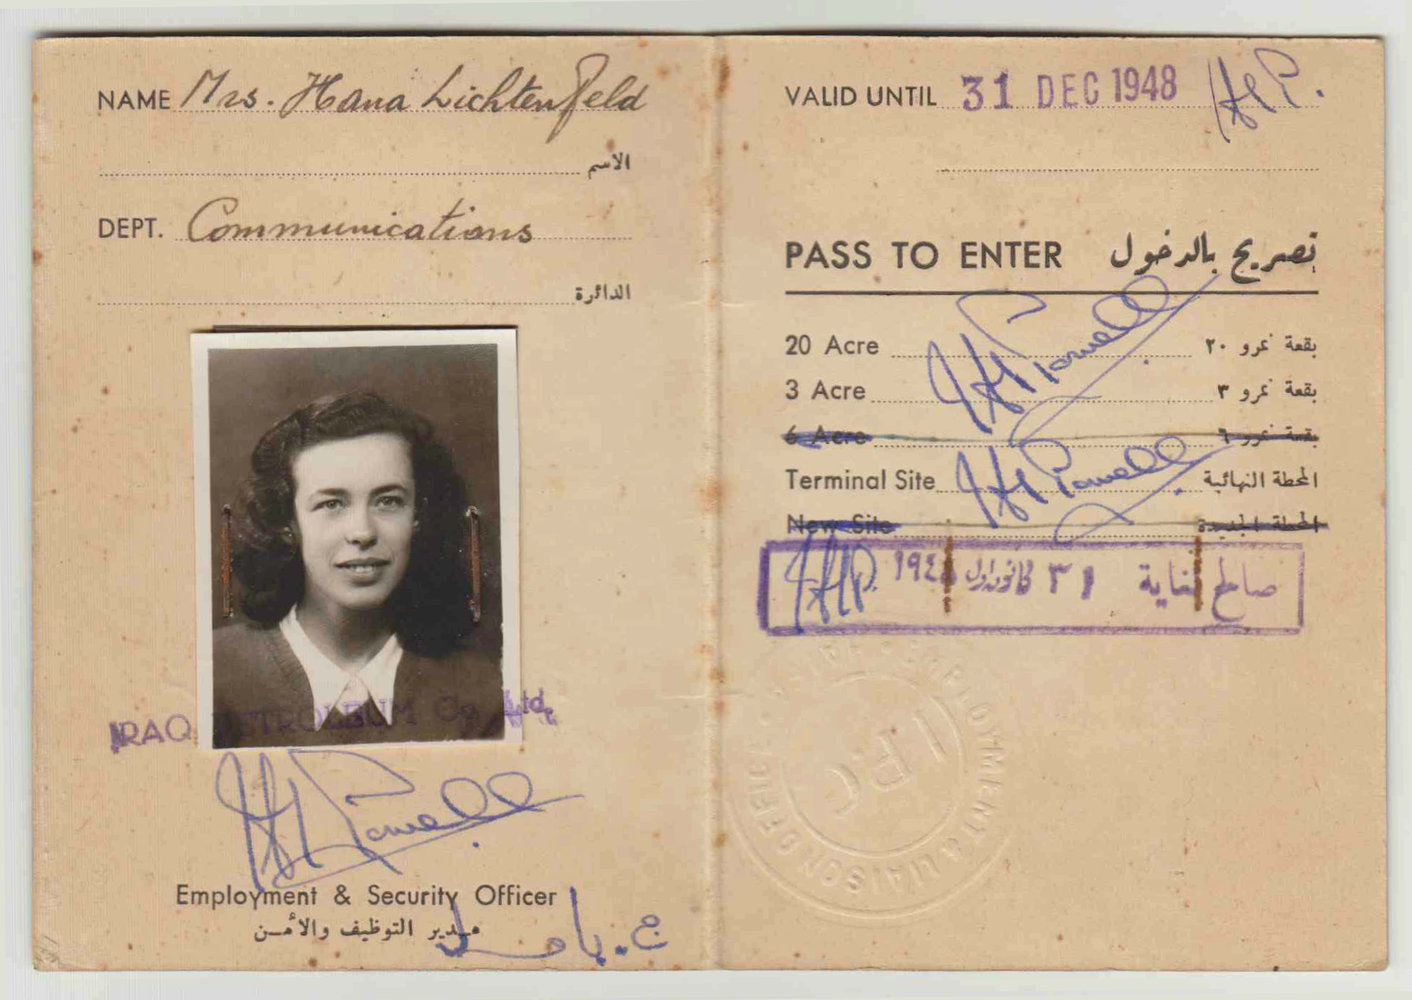 NAME Mrs. Hana Lichtenfeld
الاسم
DEPT. Communications
الدائرة
IRAQ PETROLEUM Co. Ltd.
JH Powell
Employment & Security Officer
مدير التوظيف والأمن
VALID UNTIL 31 DEC 1948 JHP.
PASS TO ENTER تصريح بالدخول
20 Acre JH Powell بقعة نمرو ٢٠
3 Acre بقعة نمرو ٣
6 Acre بقعة نمرو ٦
Terminal Site JH Powell المحطة النهائية
New Site المحطة الجديدة
JHP. صالح لغاية ٣١ كانون اول ١٩٤٨
I.P.C
EMPLOYMENT & LIAISON OFFICE